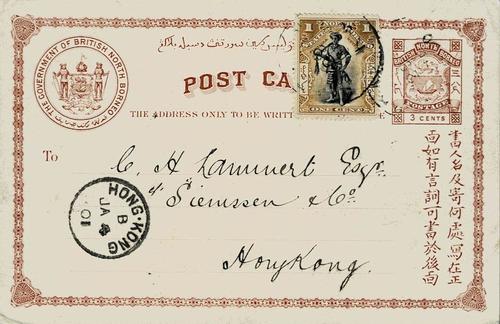 THE GOVERNMENT OF BRITISH NORTH BORNEO
POST CA
THE ADDRESS ONLY TO BE WRIT
1
1
ONE CENT
BRITISH NORTH BORNEO
POSTAGE
3 CENTS
To
C. H. Lammert Esqr.
Siemssen & Co.
HongKong.
HONG-KONG
B
JA 4
01
書人名及寄何處寫在正
面如有言訓可書於後面